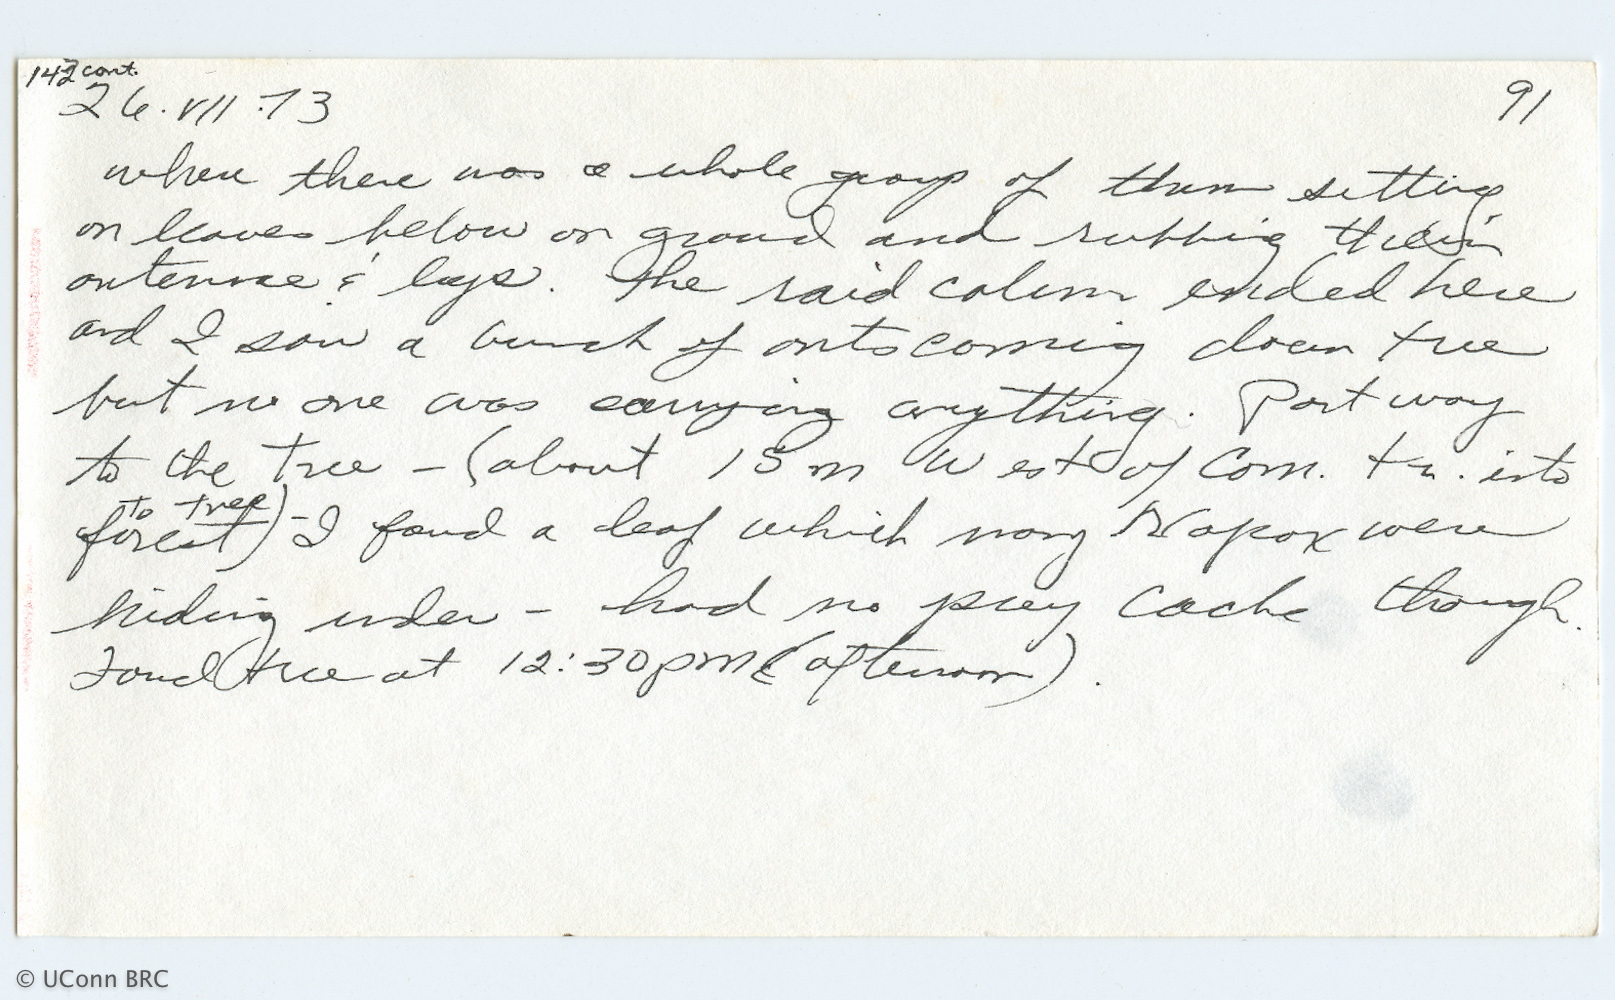 142 cont.
26.VII.73
91
where there was a whole group of them setting
on leaves below on ground and rubbing their
antennae & legs. The raid column ended here
and I saw a bunch of ants coming down tree
but no one was carrying anything. Part way
to the tree – (about 15 m West of Com. tr. into
to tree
forest) – I found a leaf which many were
hiding under – had no prey cache though.
Found tree at 12:30pm (afternoon).
© UConn BRC